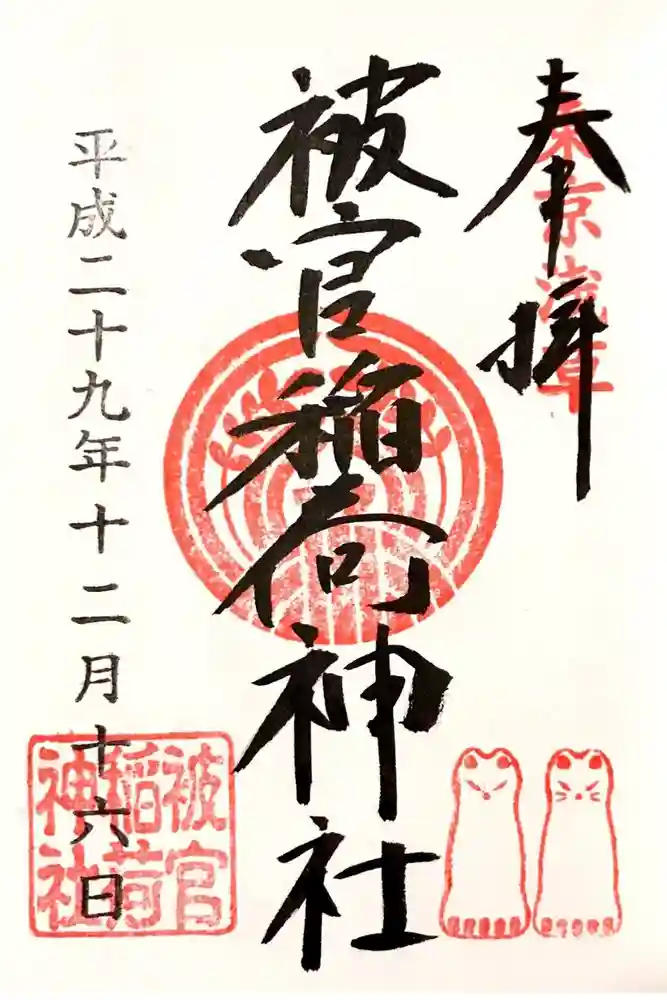 奉拝
東京浅草
被官稲荷神社
被官
稲荷
神社
平成二十九年十二月十六日